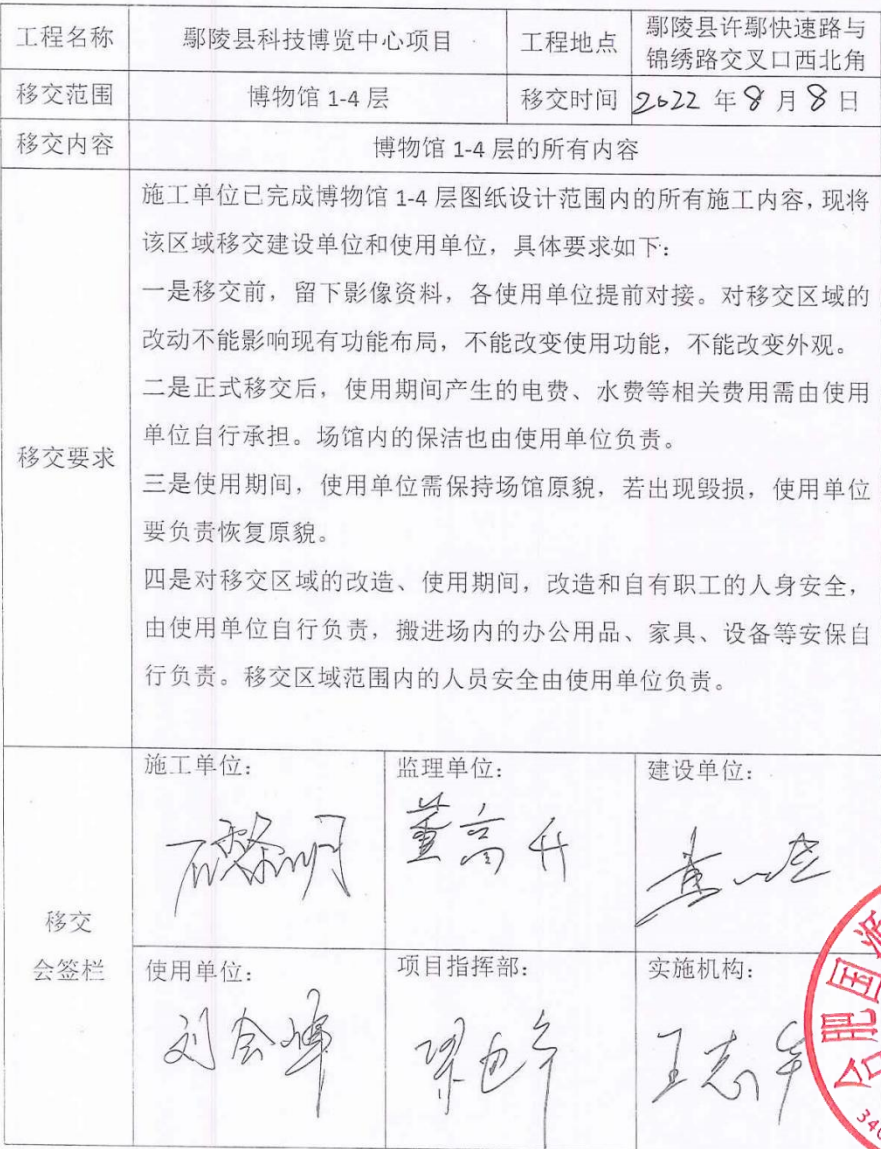 工程名称 鄢陵县科技博览中心项目 工程地点 鄢陵县许鄢快速路与
锦绣路交叉口西北角
移交范围 博物馆 1-4 层 移交时间 2022 年 8 月 8 日
移交内容 博物馆 1-4 层的所有内容
移交要求
施工单位已完成博物馆 1-4 层图纸设计范围内的所有施工内容，现将
该区域移交建设单位和使用单位，具体要求如下：
一是移交前，留下影像资料，各使用单位提前对接。对移交区域的
改动不能影响现有功能布局，不能改变使用功能，不能改变外观。
二是正式移交后，使用期间产生的电费、水费等相关费用需由使用
单位自行承担。场馆内的保洁也由使用单位负责。
三是使用期间，使用单位需保持场馆原貌，若出现毁损，使用单位
要负责恢复原貌。
四是对移交区域的改造、使用期间，改造和自有职工的人身安全，
由使用单位自行负责，搬进场内的办公用品、家具、设备等安保自
行负责。移交区域范围内的人员安全由使用单位负责。
移交
会签栏
施工单位： 监理单位： 建设单位：
董高升
使用单位： 项目指挥部： 实施机构：
刘会峰 王志
合肥国
340